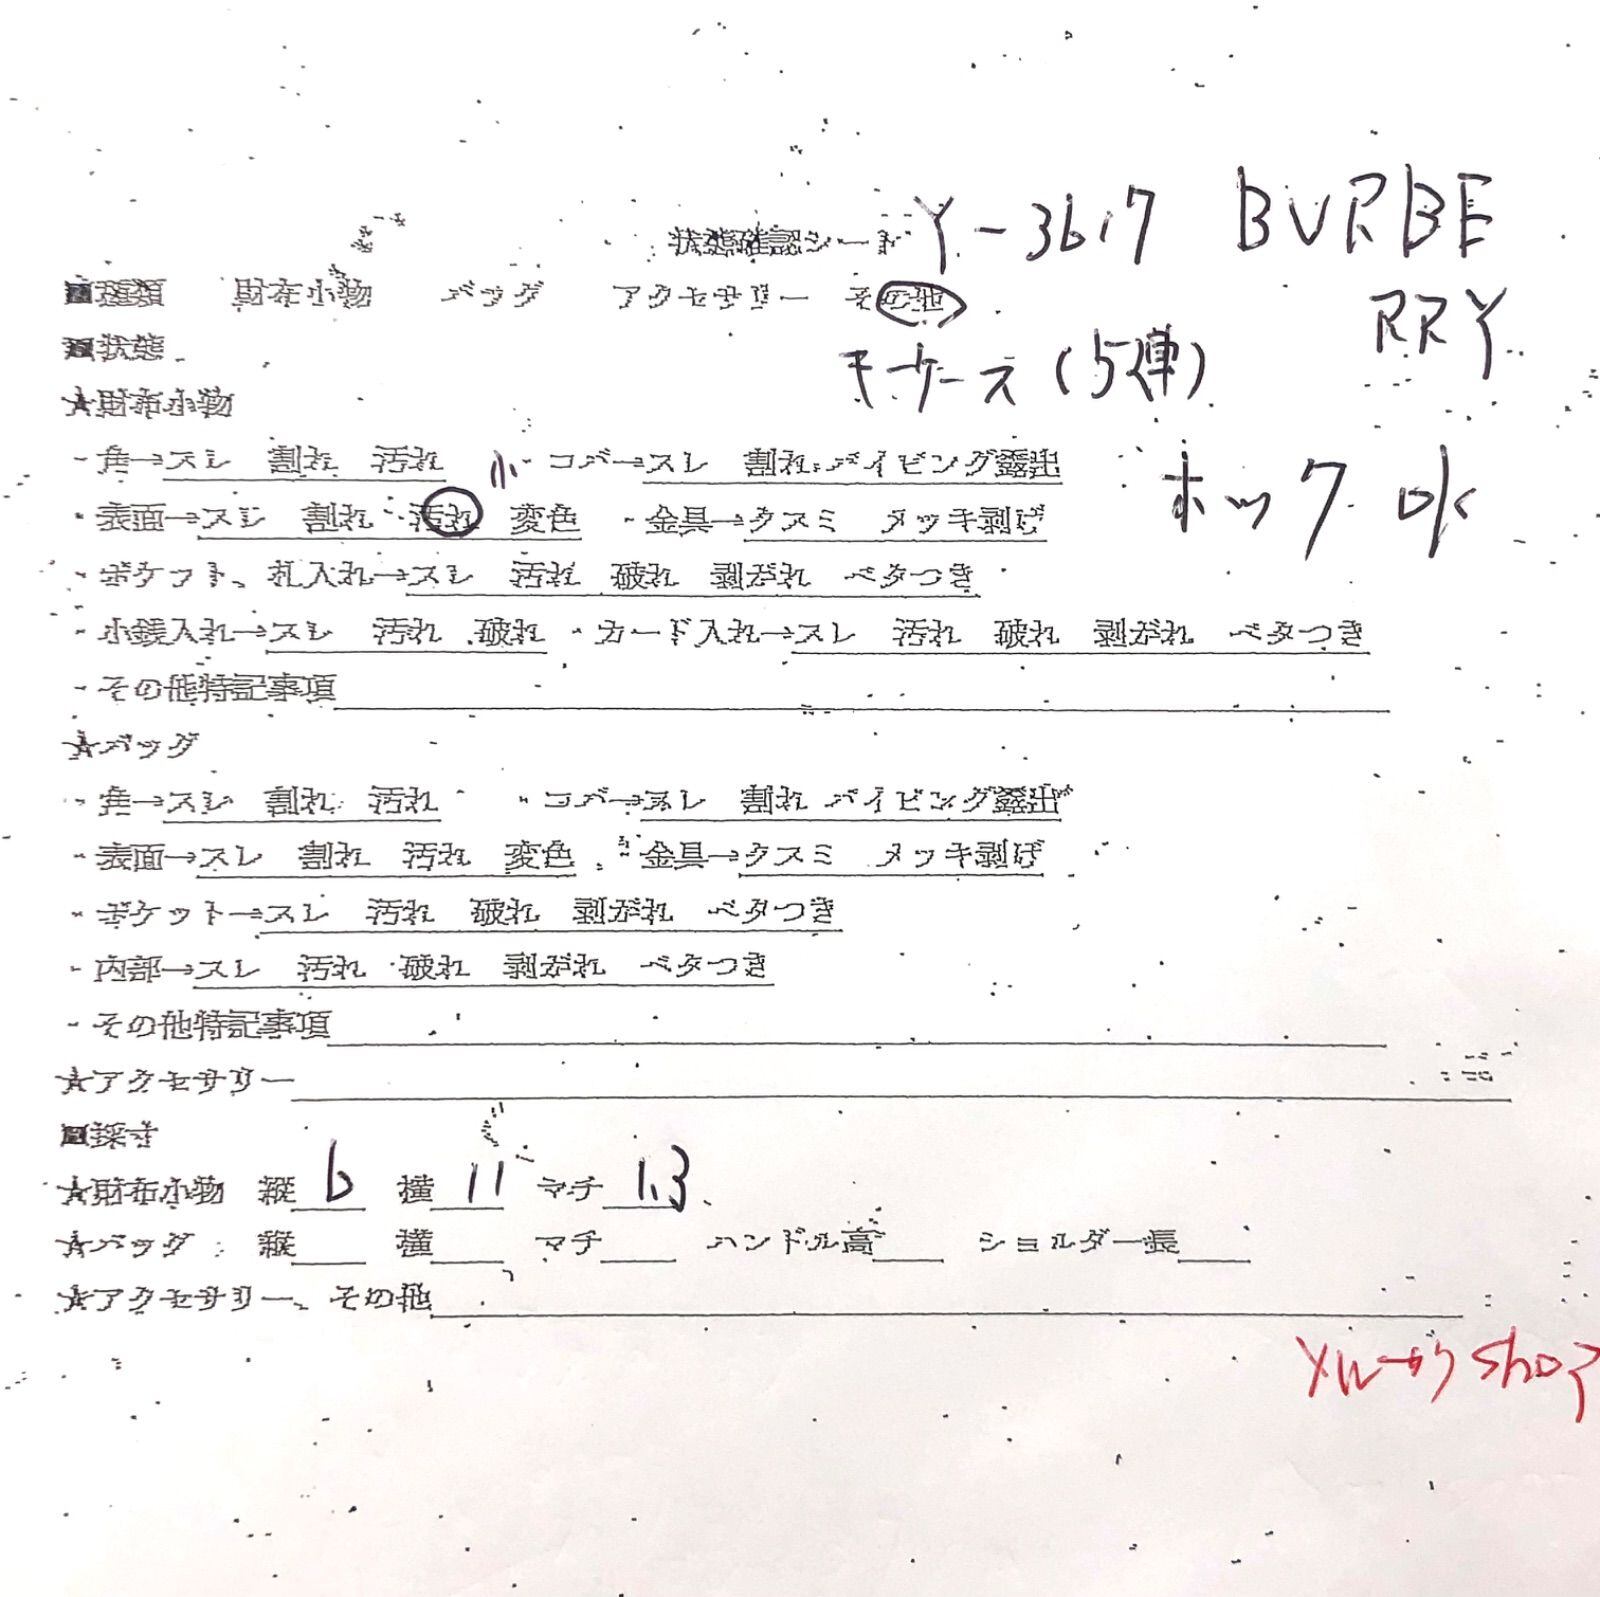 状態確認シート Y-3617 BURBE
RRY
■種類 財布小物 バッグ アクセサリー その他
■状態 キーケース(5連)
★財布小物
・角→スレ 割れ 汚れ 小 ・コバ→スレ 割れ パイピング露出
ホック OK
・表面→スレ 割れ 汚れ 変色 ・金具→クスミ メッキ剥げ
・ポケット、札入れ→スレ 汚れ 破れ 剥がれ ベタつき
・小銭入れ→スレ 汚れ 破れ ・カード入れ→スレ 汚れ 破れ 剥がれ ベタつき
・その他特記事項
★バッグ
・角→スレ 割れ 汚れ ・コバ→スレ 割れ パイピング露出
・表面→スレ 割れ 汚れ 変色 ・金具→クスミ メッキ剥げ
・ポケット→スレ 汚れ 破れ 剥がれ ベタつき
・内部→スレ 汚れ 破れ 剥がれ ベタつき
・その他特記事項
★アクセサリー
■採寸
★財布小物 縦 6 横 11 マチ 1.3
★バッグ 縦 横 マチ ハンドル高 ショルダー長
★アクセサリー、その他
shop